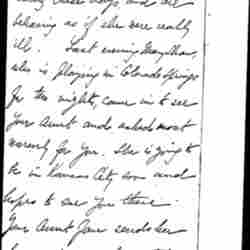 these days, and are
behaving as if she were really
ill. Last evening
who is playing in Colorado Springs
for two nights, came in to see
your Aunt and asked most
warmly for you. She is going to
be in Kansas City soon and
hopes to see you there.
Your Aunt Jane sends her